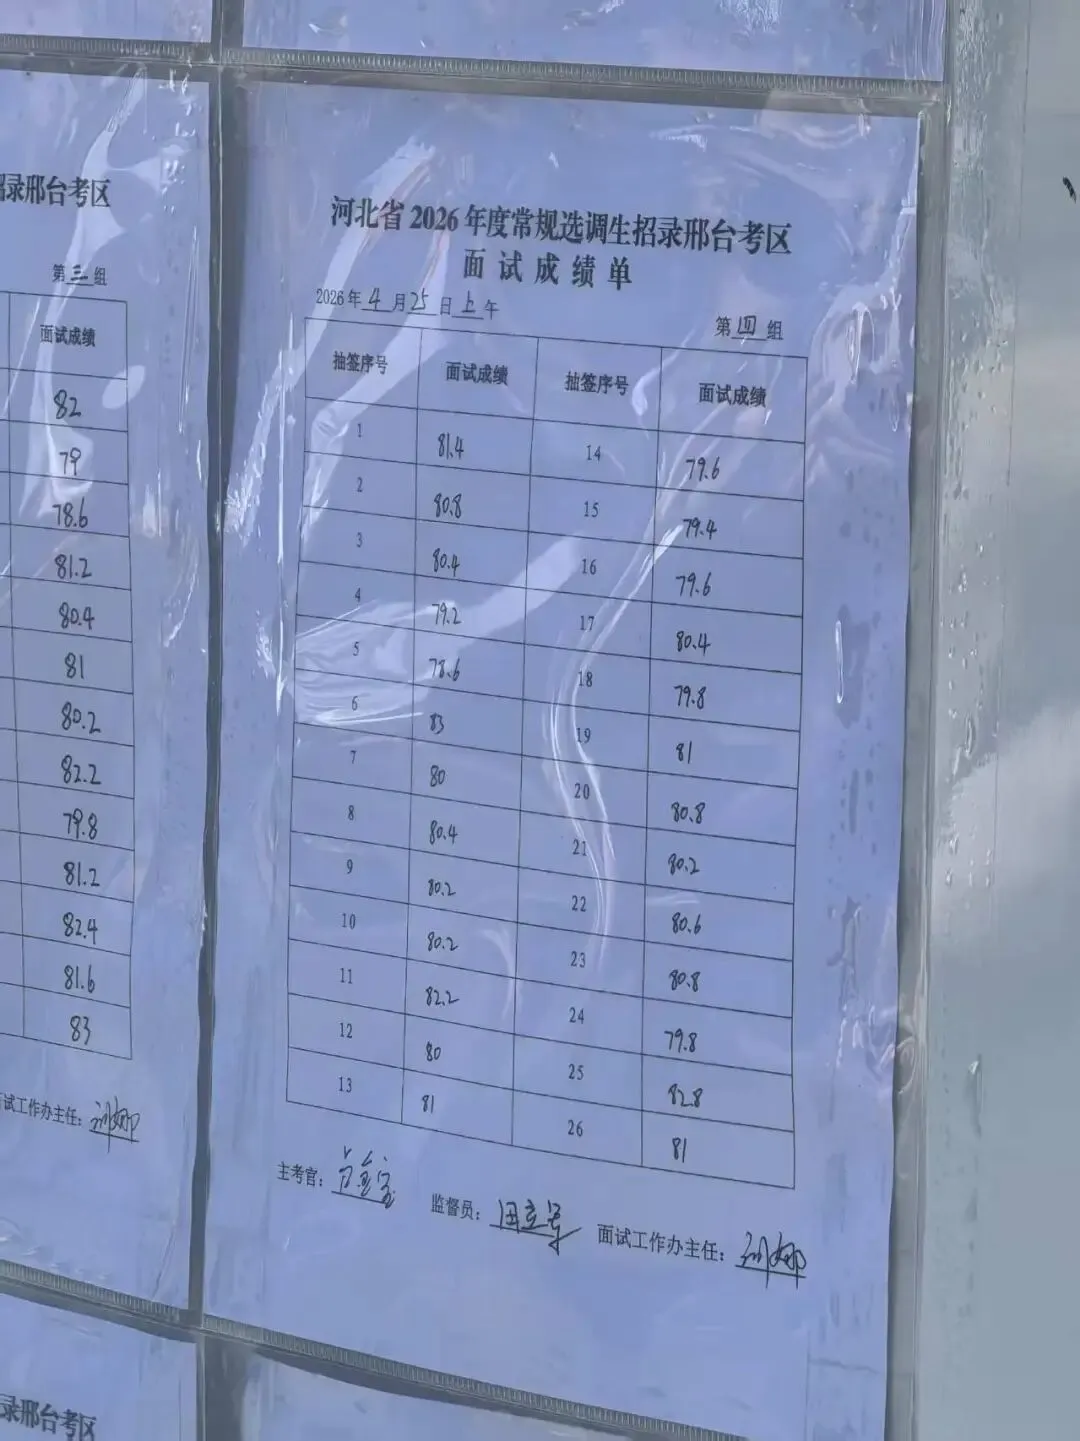 招录邢台考区
第三组
面试成绩
82
79
78.6
81.2
80.4
81
80.2
82.2
79.8
81.2
82.4
81.6
83
试工作办主任：
河北省2026年度常规选调生招录邢台考区
面试成绩单
2026年4月25日上午
第四组
抽签序号 面试成绩 抽签序号 面试成绩
1 81.4 14 79.6
2 80.8 15 79.4
3 80.4 16 79.6
4 79.2 17 80.4
5 78.6 18 79.8
6 83 19 81
7 80 20 80.8
8 80.4 21 80.2
9 80.2 22 80.6
10 80.2 23 80.8
11 82.2 24 79.8
12 80 25 82.8
13 81 26 81
主考官： 监督员： 面试工作办主任：
录邢台考区